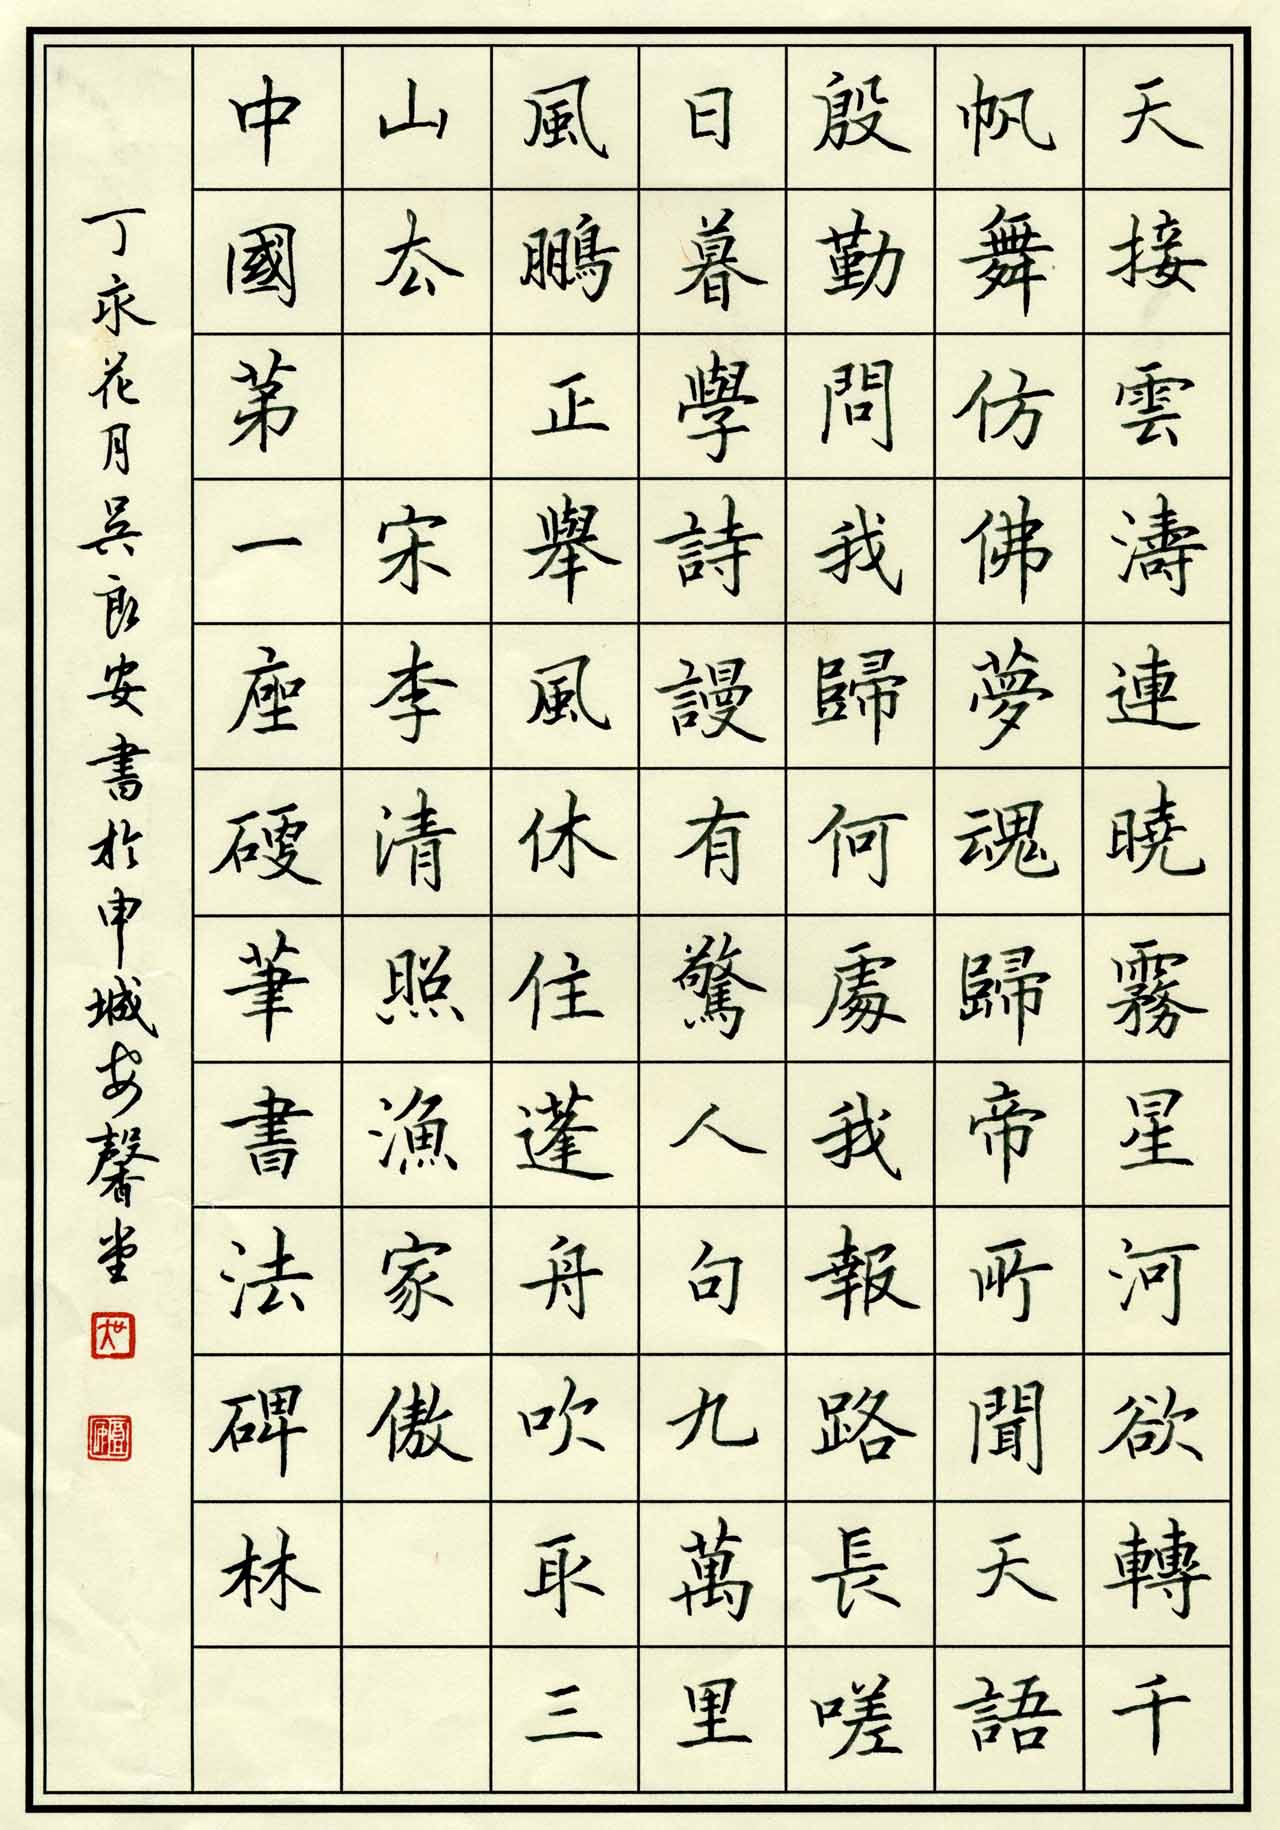 天接雲濤連曉霧星河欲轉千
帆舞仿佛夢魂歸帝所聞天語
殷勤問我歸何處我報路長嗟
日暮學詩謾有驚人句九萬里
風鵬正舉風休住蓬舟吹取三
山去 宋李清照漁家傲
中國第一座硬筆書法碑林
丁亥花月吳良安書於申城安馨堂